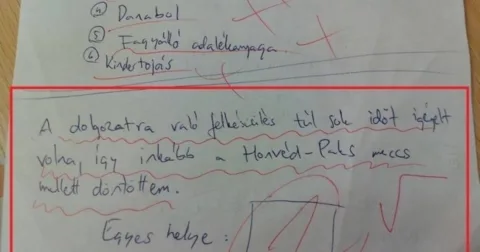 ④ Danabol
⑤ Fagyálló adalékanyaga
⑥ Kindertojás
A dolgozatra való felkészülés túl sok időt igényelt
volna, így inkább a Honvéd-Paks meccs
mellett döntöttem.
Egyes helye: